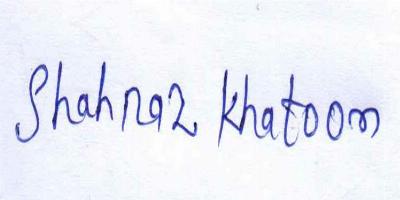 Shahnaz Khatoon